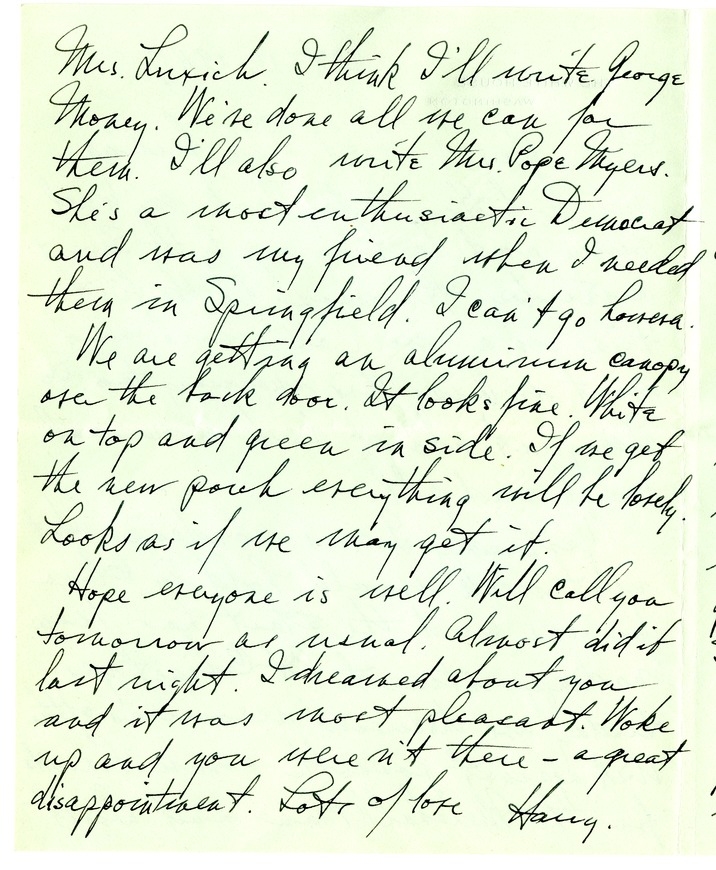 Mrs. Luxich. I think I'll write George
Money. We've done all we can for
them. I'll also write Mrs. Pope Myers.
She's a most enthusiastic Democrat
and was my friend when I needed
them in Springfield. I can't go however.
We are getting an aluminum canopy
over the back door. It looks fine. White
on top and green inside. If we get
the new porch everything will be lovely.
Looks as if we may get it.
Hope everyone is well. Will call you
tomorrow as usual. Almost did it
last night. I dreamed about you
and it was most pleasant. Woke
up and you weren't there - a great
disappointment. Lots of love Harry.